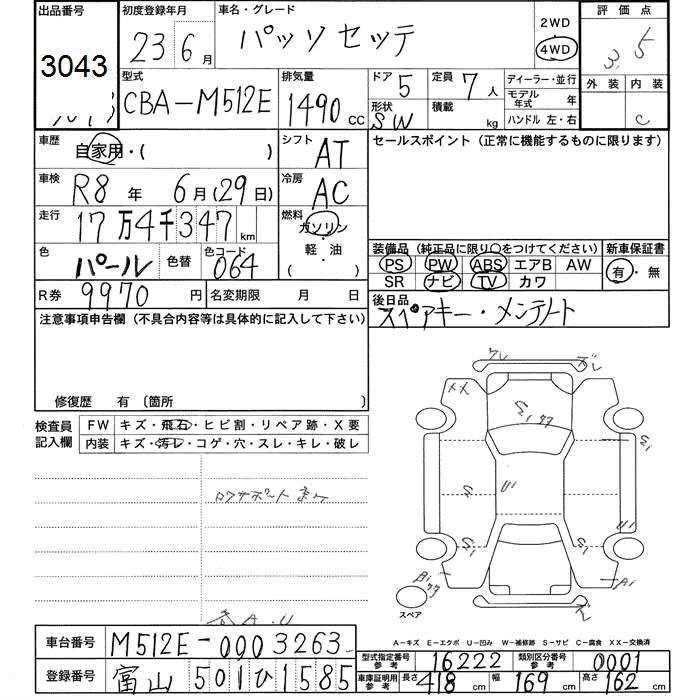 出品番号
3043
初度登録年月
23年6月
車名・グレード
パッソセッテ
2WD
4WD
評価点
3.5
外装 内装
C
型式
CBA-M512E
排気量
1490 CC
ドア 5
形状 SW
定員 7人
積載 kg
ディーラー・並行
モデル年式 年
ハンドル 左・右
車歴
自家用・( )
シフト
AT
セールスポイント (正常に機能するものに限ります)
車検
R8年 6月(29日)
冷房
AC
走行
17万4千347km
燃料
ガソリン
・
軽・油
( )
色
パール
色替
色コード
064
装備品 (純正品に限り〇をつけてください)
PS PW ABS エアB AW
SR ナビ TV カワ
新車保証書
有・無
R券 9970円
名変期限 月 日
後日品
スペアキー・メンテノート
注意事項申告欄 (不具合内容等は具体的に記入して下さい)
修復歴 有 〔箇所 〕
検査員
記入欄
FW キズ・飛石・ヒビ割・リペア跡・X要
内装 キズ・汚レ・コゲ・穴・スレ・キレ・破レ
ズレ
XX
S1
S
U
U1
S1
S1
A1
スペア
A-キズ E-エクボ U-凹み W-補修跡 S-サビ C-腐食 XX-交換済
車台番号
M512E-0003263
登録番号
富山 501 ひ 1585
型式指定番号
参考
16222
類別区分番号
参考
0001
車庫証明用
参考
長さ 418cm 幅 169cm 高さ 162cm